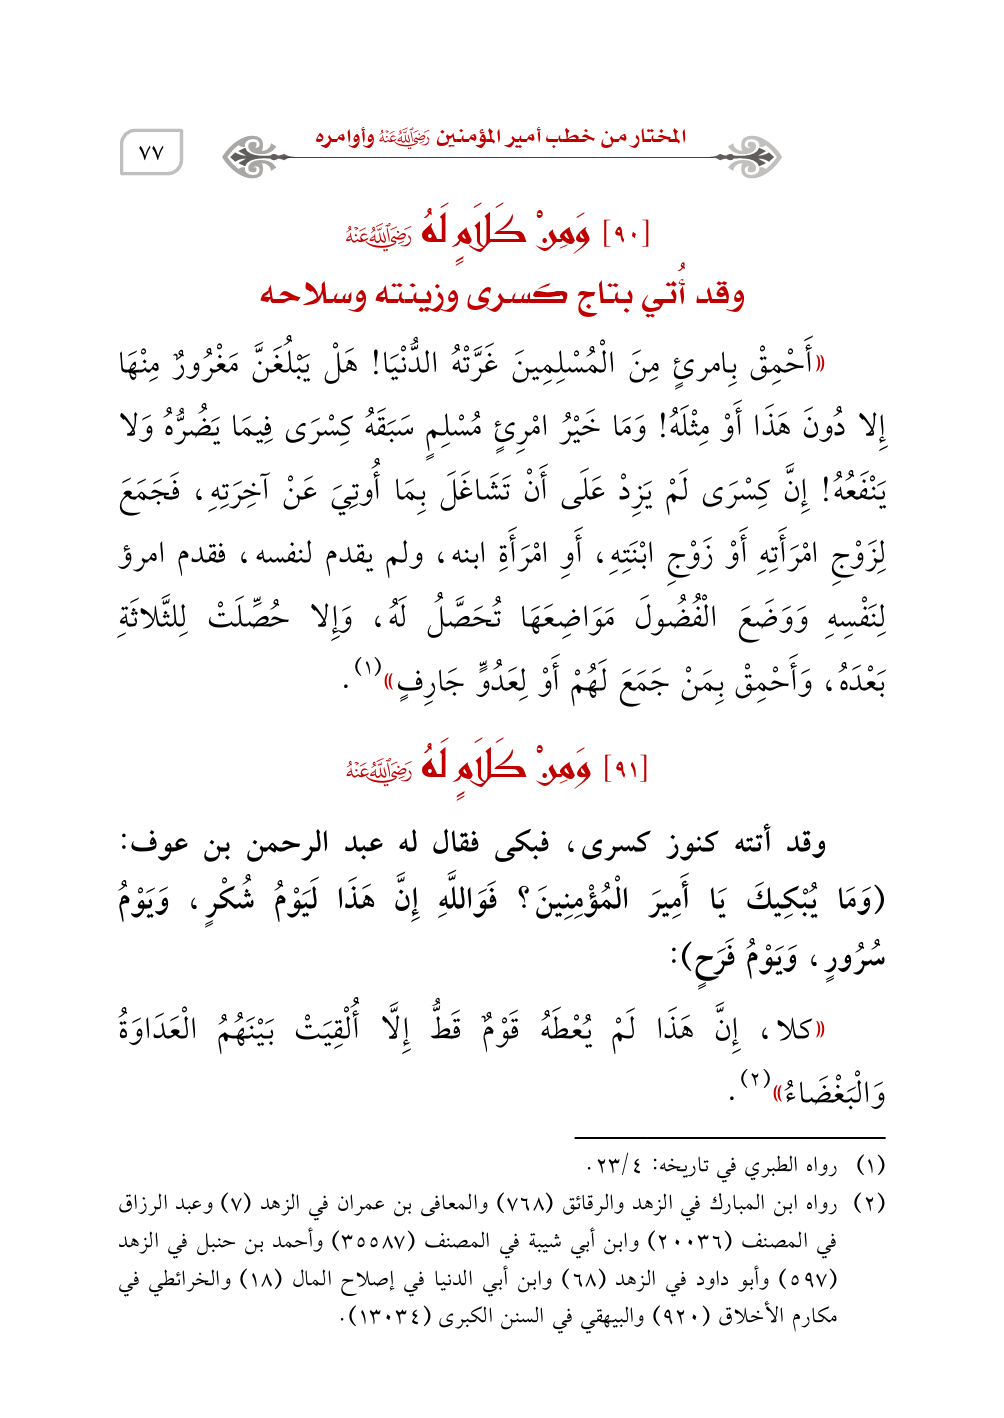 المختار من خطب أمير المؤمنين رَضِيَ اللَّهُ عَنْهُ وأوامره
٧٧
[٩٠] وَمِنْ كَلَامٍ لَهُ رَضِيَ اللَّهُ عَنْهُ
وقد أُتي بتاج كسرى وزينته وسلاحه
«أَحْمِقْ بِامرئٍ مِنَ الْمُسْلِمِينَ غَرَّتْهُ الدُّنْيَا! هَلْ يَبْلُغَنَّ مَغْرُورٌ مِنْهَا
إِلا دُونَ هَذَا أَوْ مِثْلَهُ! وَمَا خَيْرُ امْرِئٍ مُسْلِمٍ سَبَقَهُ كِسْرَى فِيمَا يَضُرُّهُ وَلا
يَنْفَعُهُ! إِنَّ كِسْرَى لَمْ يَزِدْ عَلَى أَنْ تَشَاغَلَ بِمَا أُوتِيَ عَنْ آخِرَتِهِ، فَجَمَعَ
لِزَوْجِ امْرَأَتِهِ أَوْ زَوْجِ ابْنَتِهِ، أَوِ امْرَأَةِ ابنه، ولم يقدم لنفسه، فقدم امرؤ
لِنَفْسِهِ وَوَضَعَ الْفُضُولَ مَوَاضِعَهَا تُحَصَّلُ لَهُ، وَإِلا حُصِّلَتْ لِلثَّلاثَةِ
بَعْدَهُ، وَأَحْمِقْ بِمَنْ جَمَعَ لَهُمْ أَوْ لِعَدُوٍّ جَارِفٍ»(١).
[٩١] وَمِنْ كَلَامٍ لَهُ رَضِيَ اللَّهُ عَنْهُ
وقد أتته كنوز كسرى، فبكى فقال له عبد الرحمن بن عوف:
(وَمَا يُبْكِيكَ يَا أَمِيرَ الْمُؤْمِنِينَ؟ فَوَاللَّهِ إِنَّ هَذَا لَيَوْمُ شُكْرٍ، وَيَوْمُ
سُرُورٍ، وَيَوْمُ فَرَحٍ):
«كلا، إِنَّ هَذَا لَمْ يُعْطَهُ قَوْمٌ قَطُّ إِلَّا أُلْقِيَتْ بَيْنَهُمُ الْعَدَاوَةُ
وَالْبَغْضَاءُ»(٢).
(١) رواه الطبري في تاريخه: ٢٣/٤.
(٢) رواه ابن المبارك في الزهد والرقائق (٧٦٨) والمعافى بن عمران في الزهد (٧) وعبد الرزاق
في المصنف (٢٠٠٣٦) وابن أبي شيبة في المصنف (٣٥٥٨٧) وأحمد بن حنبل في الزهد
(٥٩٧) وأبو داود في الزهد (٦٨) وابن أبي الدنيا في إصلاح المال (١٨) والخرائطي في
مكارم الأخلاق (٩٢٠) والبيهقي في السنن الكبرى (١٣٠٣٤).